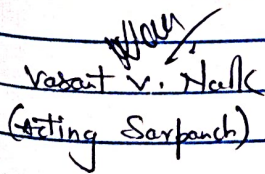 Vasant V. Naik
(Acting Sarpanch)